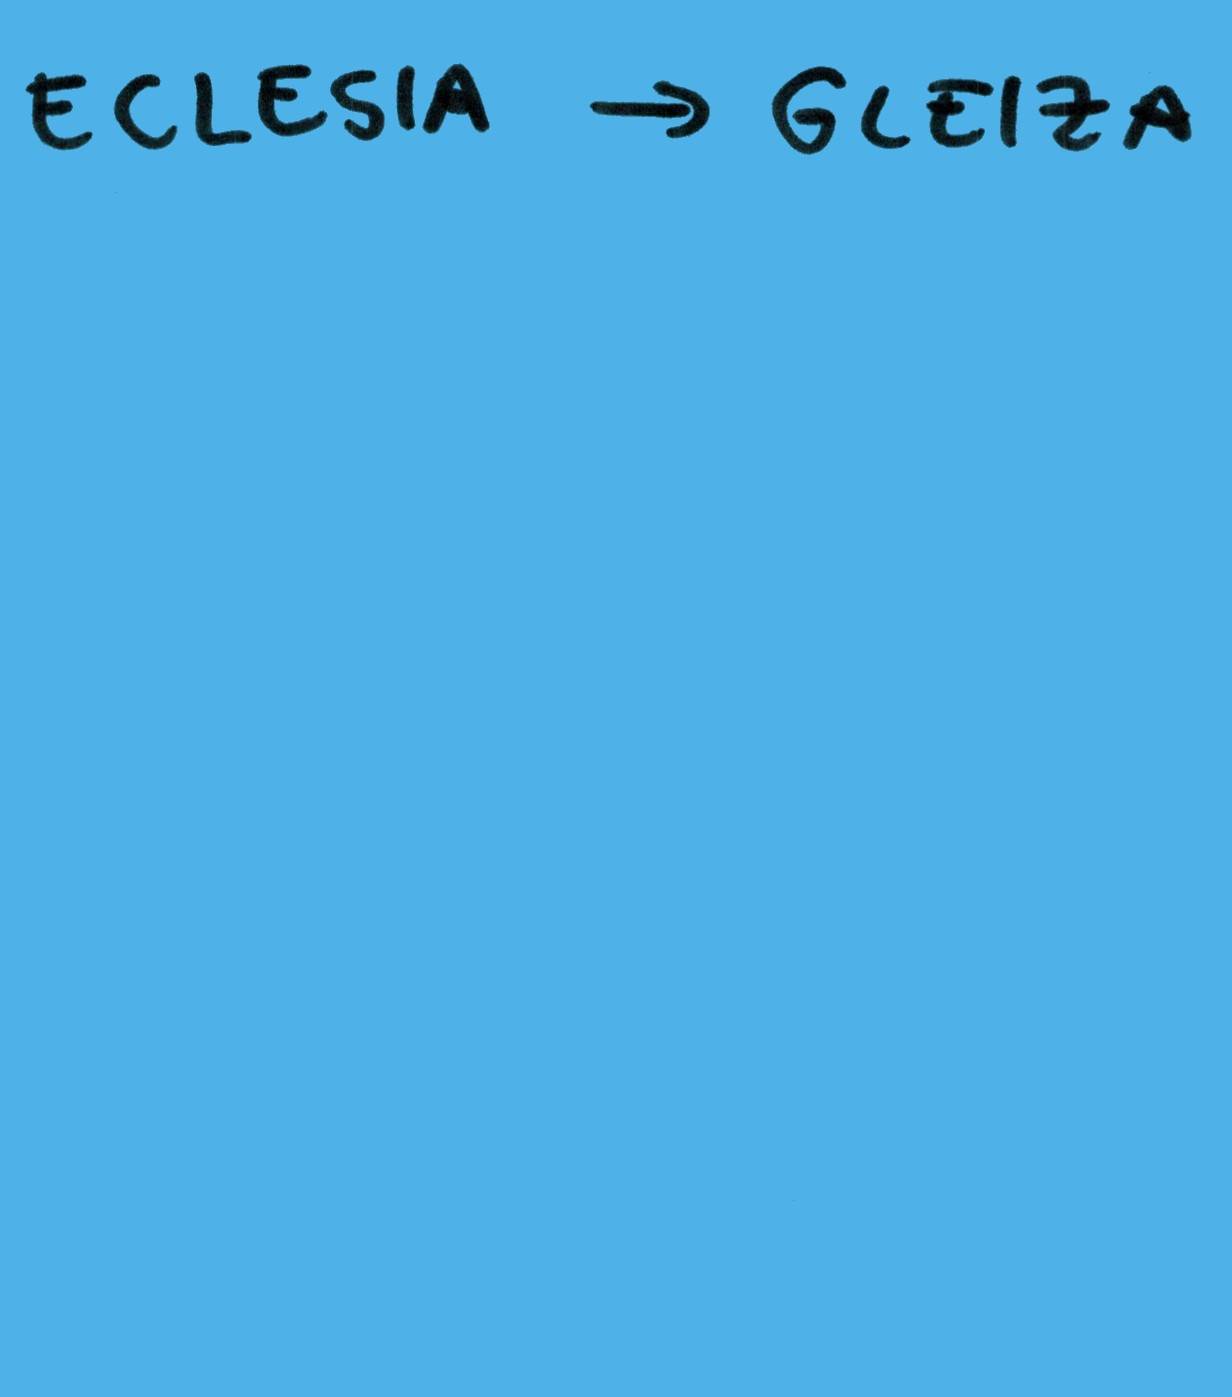 ECLESIA → GLEIZA